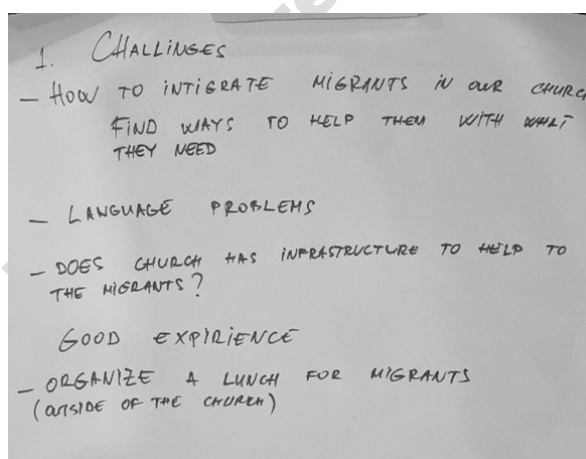 1. CHALLINGES
- HOW TO INTIGRATE MIGRANTS IN OUR CHURC
FIND WAYS TO HELP THEM WITH WHAT
THEY NEED
- LANGUAGE PROBLEMS
- DOES CHURCH HAS INFRASTRUCTURE TO HELP TO
THE MIGRANTS?
GOOD EXPIRIENCE
- ORGANIZE A LUNCH FOR MIGRANTS
(OUTSIDE OF THE CHURCH)